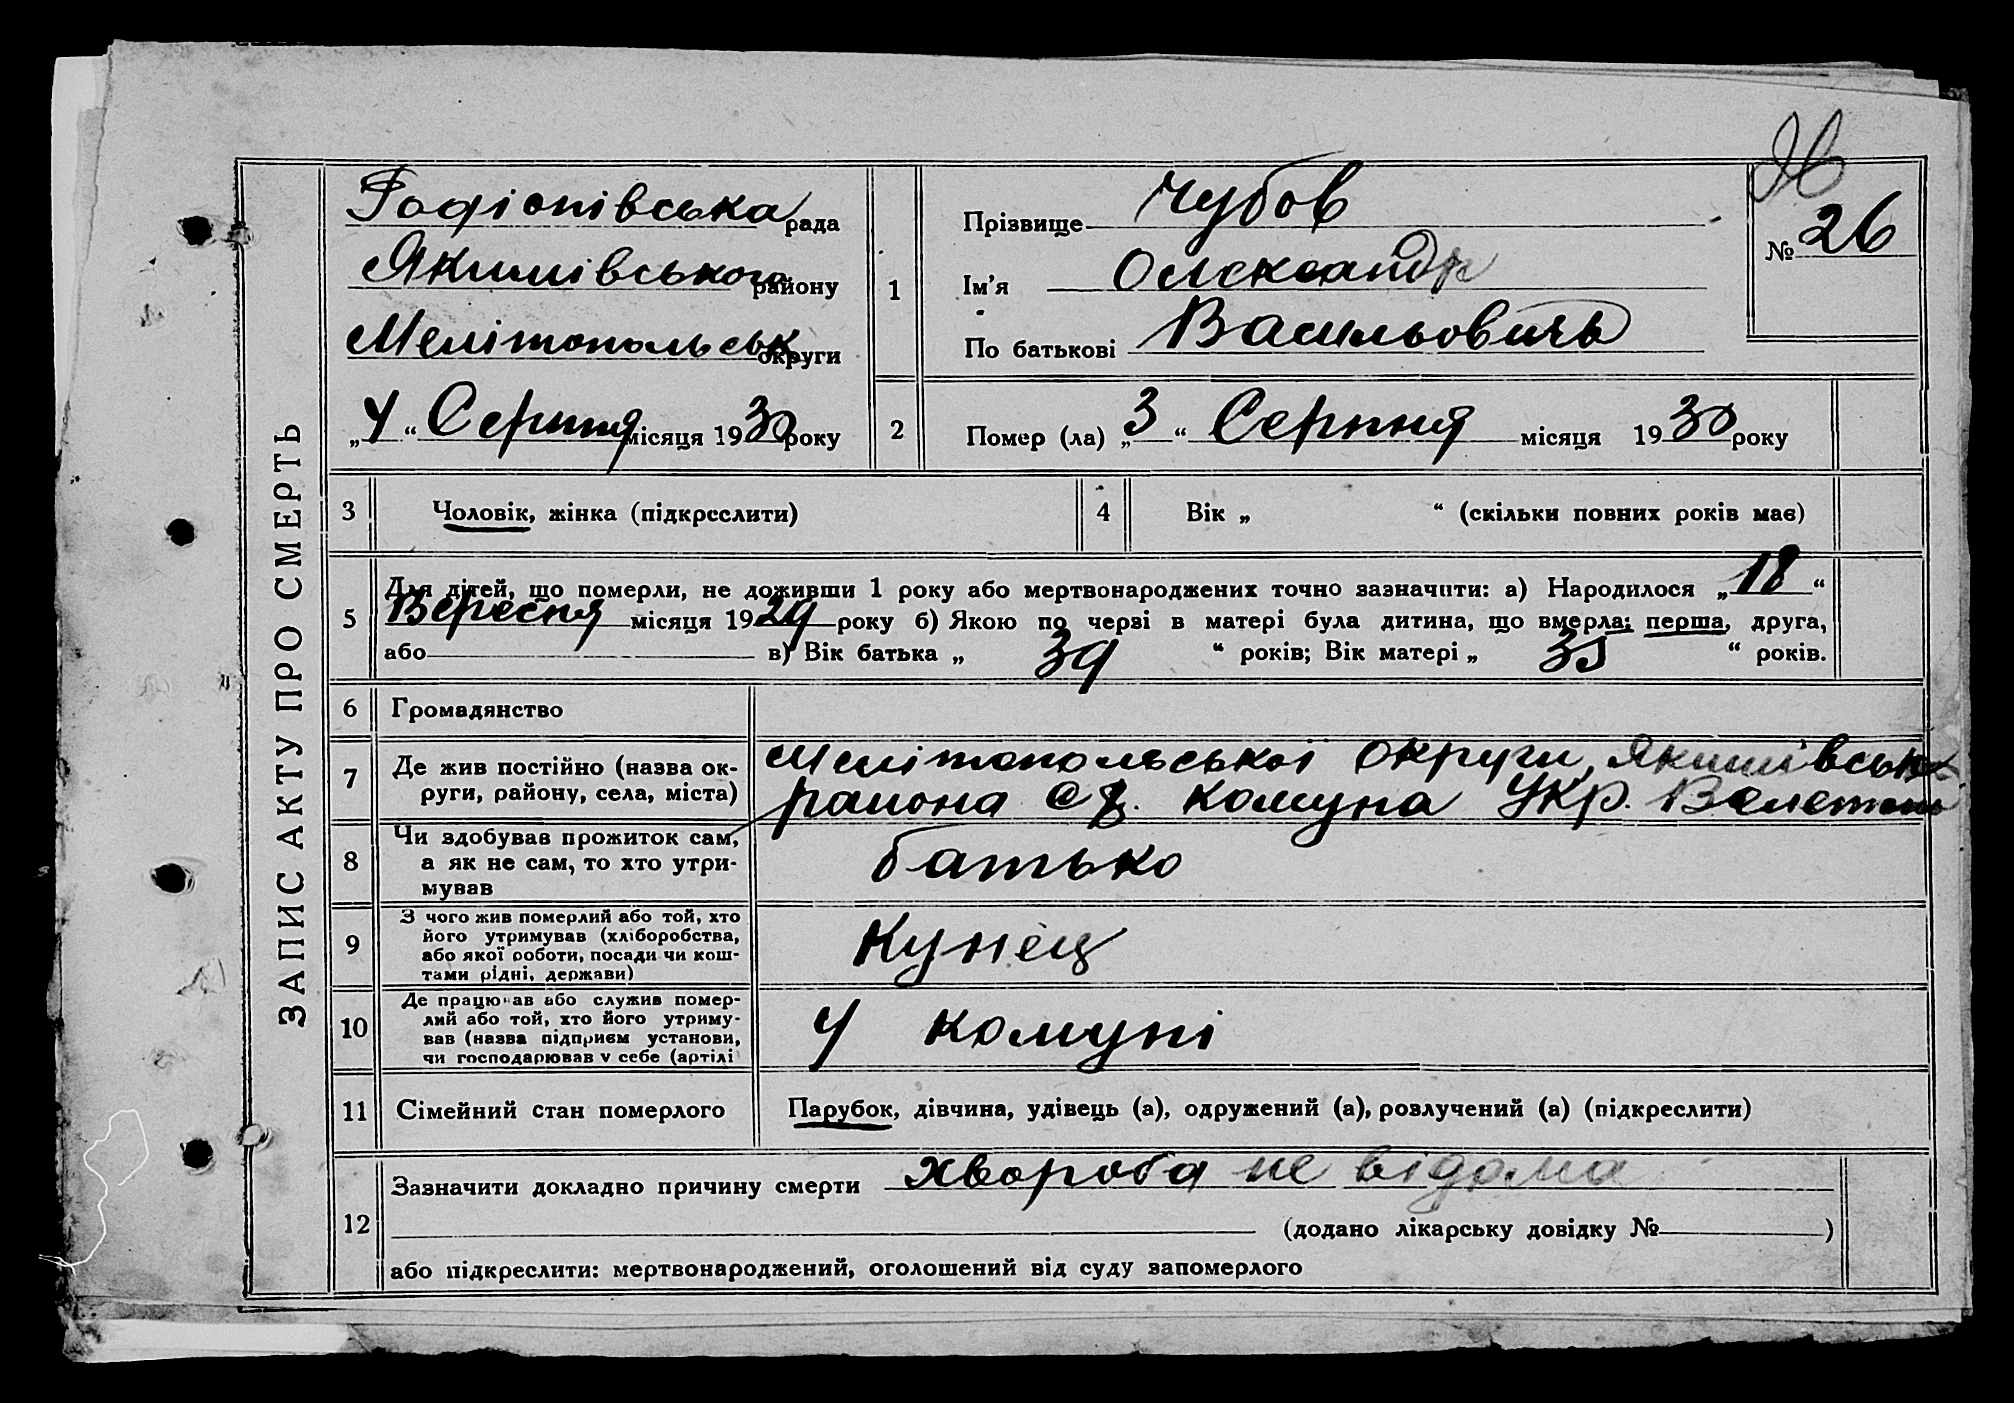 ЗАПИС АКТУ ПРО СМЕРТЬ
Радіонівська рада
Якимівського району
Мелітопольськ округи
„4“ Серпня місяця 1930 року
1
Прізвище Чубов
Ім'я Олександр
По батькові Васильовичь
№ 26
2
Помер (ла) „3“ Серпня місяця 1930 року
3
Чоловік, жінка (підкреслити)
4
Вік „ “ (скільки повних років має)
5
Для дітей, що померли, не доживши 1 року або мертвонароджених точно зазначити: а) Народилося „18“
Вересня місяця 1929 року б) Якою по черзі в матері була дитина, що вмерла: перша, друга,
або в) Вік батька „ 39 “ років; Вік матері „ 35 “ років.
6
Громадянство
7
Де жив постійно (назва ок-
руги, району, села, міста)
Мелітопольської округи, Якимівськ
района комуна Укр.
8
Чи здобував прожиток сам,
а як не сам, то хто утри-
мував
батько
9
З чого жив померлий або той, хто
його утримував (хліборобства,
або якої роботи, посади чи кош-
тами рідні, держави)
10
Де працював або служив помер-
лий або той, хто його утриму-
вав (назва підприєм установи,
чи господарював у себе (артілі
У комуні
11
Сімейний стан померлого
Парубок, дівчина, удівець (а), одружений (а), розлучений (а) (підкреслити)
12
Зазначити докладно причину смерти хвороба не відома
(додано лікарську довідку № )
або підкреслити: мертвонароджений, оголошений від суду запомерлого